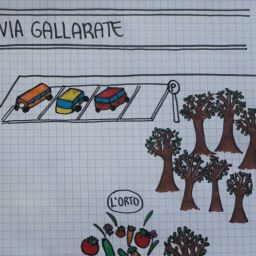 VIA GALLARATE
P
L'ORTO